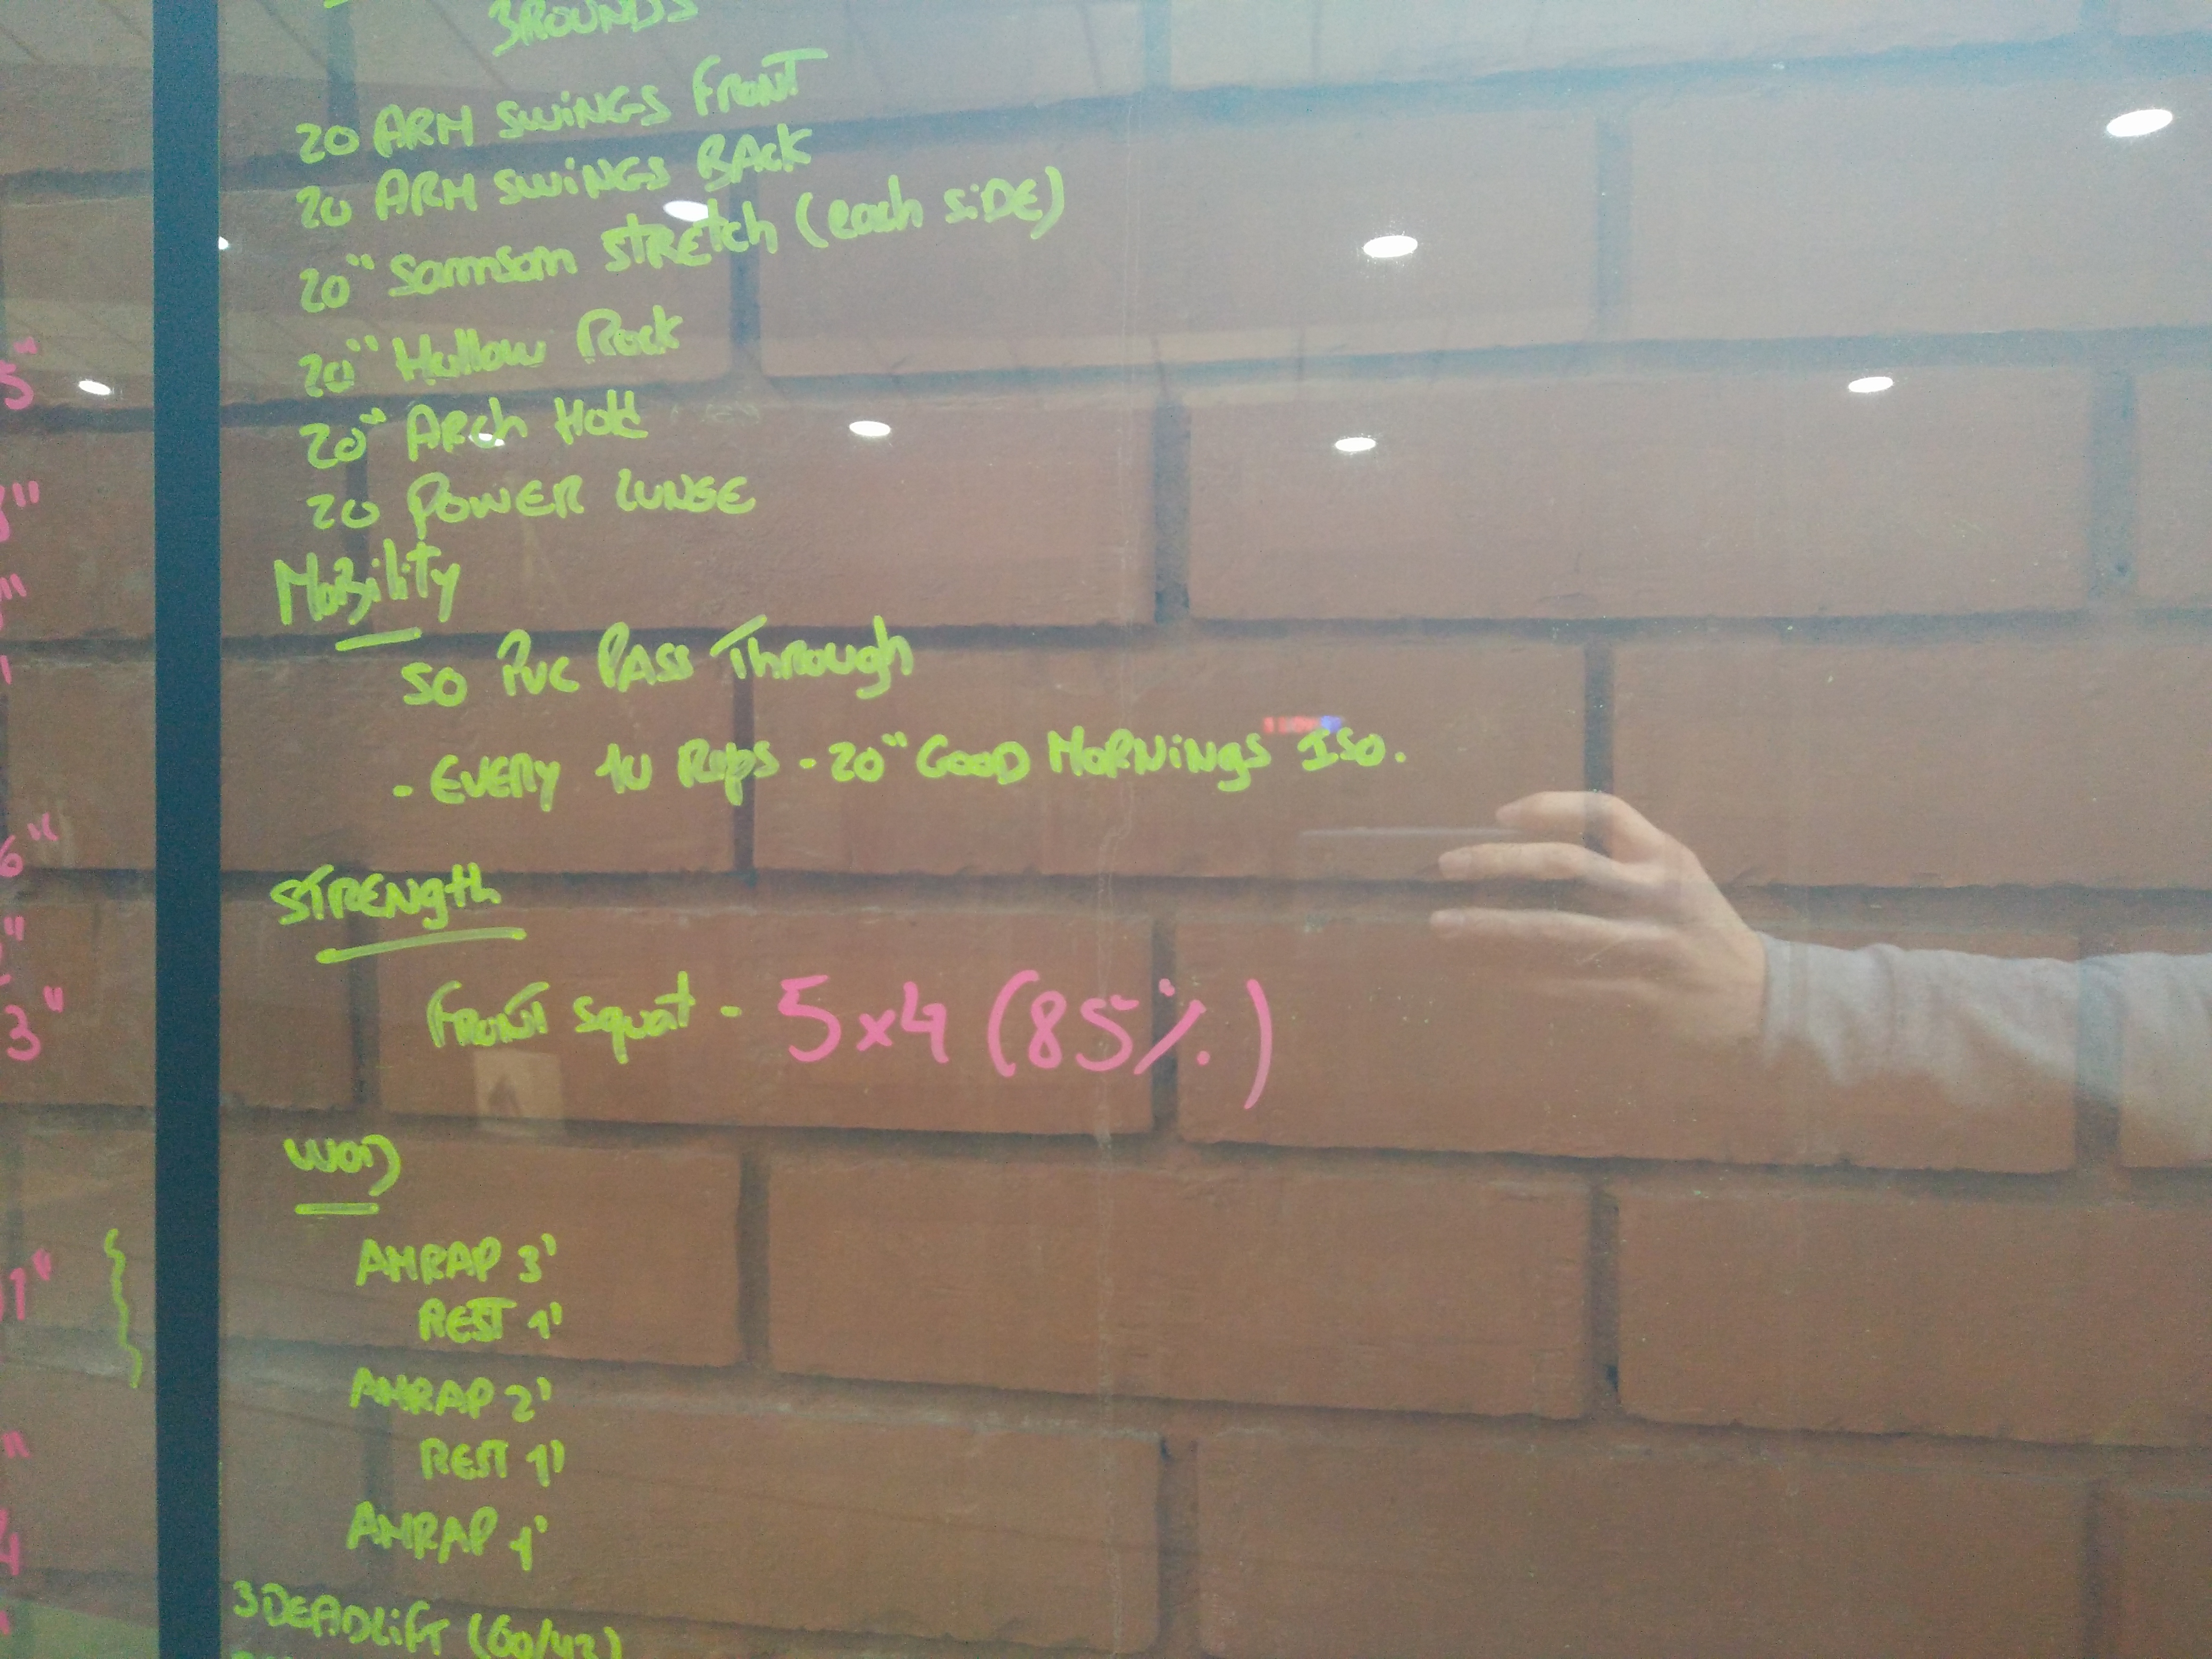 3ROUNDS
20 ARM SWINGS FRONT
20 ARM SWINGS BACK
20" Samsam STRETCH (each SIDE)
20" Hollow Rock
20" ARCh Hold
20 POWER LUNGE
Mobility
50 PVC PASS Through
- EVERY 10 Reps - 20" GOOD MORNINGS ISO.
STRENGTH
FRONT Squat - 5x4 (85%)
WOD
AMRAP 3'
REST 1'
AMRAP 2'
REST 1'
AMRAP 1'
3 DEADLIFT (60/42)